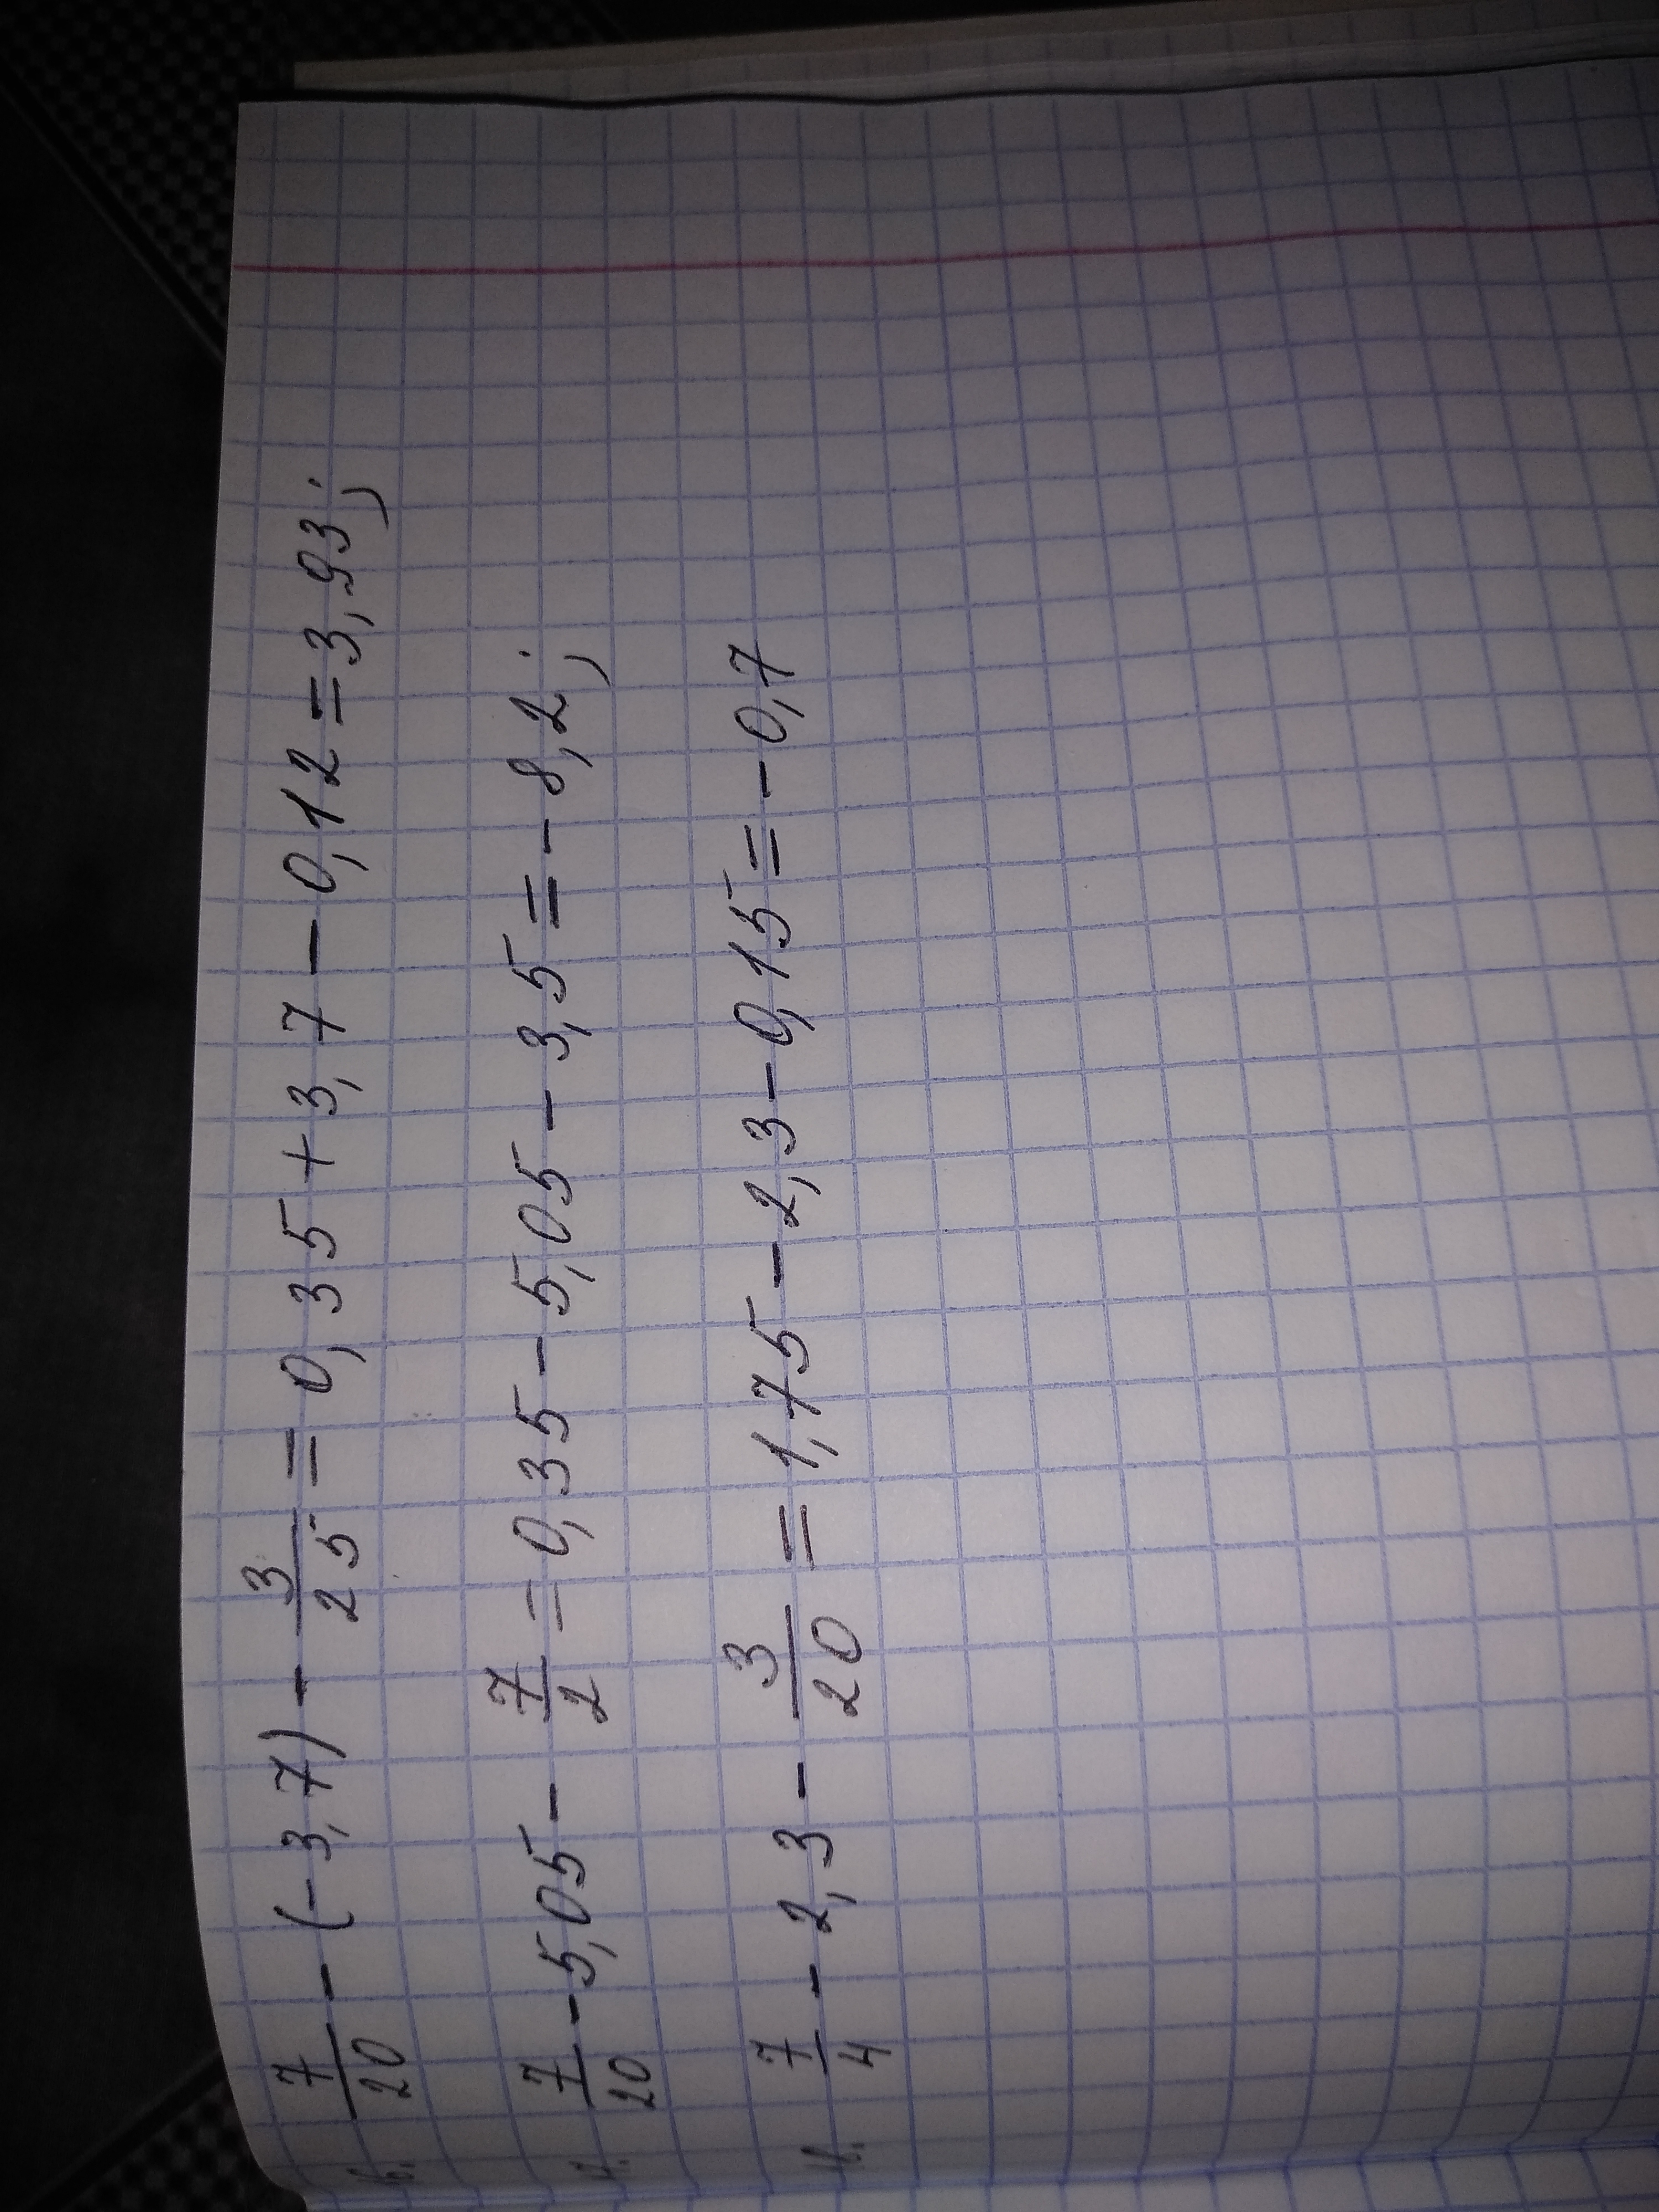 7/20 - (-3,7) - 3/25 = 0,35 + 3,7 - 0,12 = 3,93;
7/20 - 5,05 - 7/2 = 0,35 - 5,05 - 3,5 = - 8,2;
7/4 - 2,3 - 3/20 = 1,75 - 2,3 - 0,15 = - 0,7